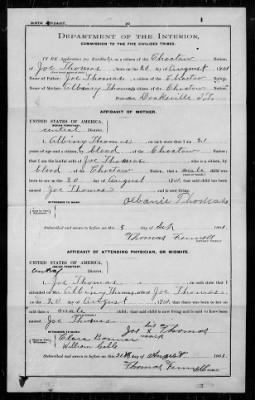 BIRTH AFFIDAVIT.
DEPARTMENT OF THE INTERIOR,
COMMISSION TO THE FIVE CIVILIZED TRIBES.
IN RE Application for Enrollment, as a citizen of the Choctaw Nation,
of Joe Thomas, born on the 20 day of August, 190
Name of Father: Joe Thomas a citizen of the Choctaw Nation.
Name of Mother: Albiny Thomas a citizen of the Choctaw Nation.
Doaksville I.T.
AFFIDAVIT OF MOTHER.
UNITED STATES OF AMERICA,
INDIAN TERRITORY,
Central District.
I, Albiny Thomas, on oath state that I am
years of age and a citizen, by blood, of the Choctaw Nation;
that I am the lawful wife of Joe Thomas, who is a citizen, by
blood, of the Choctaw Nation; that a male child was
born to me on 20 day of August, 190 that said child has been
named Joe Thomas, and is now living.
Albanie Thomas
WITNESSES TO MARK:
Subscribed and sworn to before me this 5 day of Sep, 190
Thomas Fennell
NOTARY PUBLIC.
AFFIDAVIT OF ATTENDING PHYSICIAN, OR MIDWIFE.
UNITED STATES OF AMERICA,
INDIAN TERRITORY,
Central District.
I, Joe Thomas, a
attended on Mrs. Albiny Thomas, wife of Joe Thomas
on the 20 day of August, 190 that there was born to her on
said date a male child; that said child is now living and is said to have been
named Joe Thomas
Joe his x mark Thomas
WITNESSES TO MARK:
William
Subscribed and sworn to before me this day of August, 190
Thomas Fennell